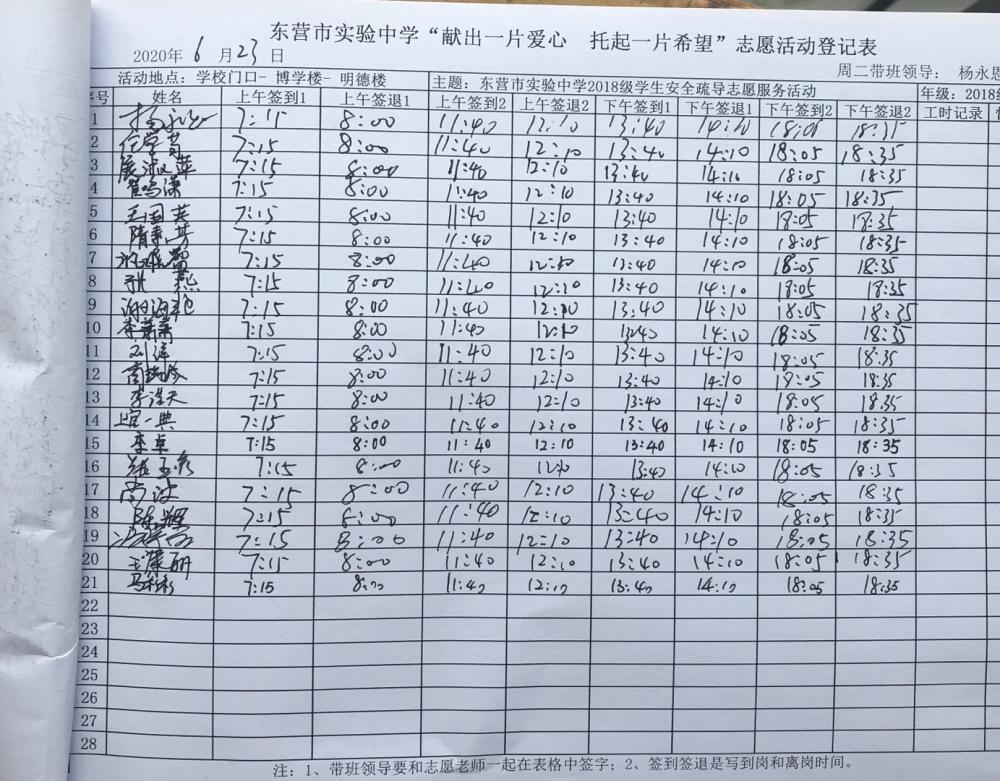 东营市实验中学“献出一片爱心 托起一片希望”志愿活动登记表
2020年 6 月 23 日
周二带班领导： 杨永恩
活动地点：学校门口- 博学楼- 明德楼 主题：东营市实验中学2018级学生安全疏导志愿服务活动 年级：2018级
序号 姓名 上午签到1 上午签退1 上午签到2 上午签退2 下午签到1 下午签退1 下午签到2 下午签退2 工时记录
1 7:15 8:00 11:40 12:10 13:40 14:10 18:05 18:35
2 7:15 8:00 11:40 12:10 13:40 14:10 18:05 18:35
3 7:15 8:00 11:40 12:10 13:40 14:10 18:05 18:35
4 7:15 8:00 11:40 12:10 13:40 14:10 18:05 18:35
5 王国英 7:15 8:00 11:40 12:10 13:40 14:10 18:05 18:35
6 7:15 8:00 11:40 12:10 13:40 14:10 18:05 18:35
7 7:15 8:00 11:40 12:10 13:40 14:10 18:05 18:35
8 张燕 7:15 8:00 11:40 12:10 13:40 14:10 18:05 18:35
9 7:15 8:00 11:40 12:10 13:40 14:10 18:05 18:35
10 7:15 8:00 11:40 12:10 13:40 14:10 18:05 18:35
11 刘洋 7:15 8:00 11:40 12:10 13:40 14:10 18:05 18:35
12 7:15 8:00 11:40 12:10 13:40 14:10 18:05 18:35
13 李浩天 7:15 8:00 11:40 12:10 13:40 14:10 18:05 18:35
14 上官一典 7:15 8:00 11:40 12:10 13:40 14:10 18:05 18:35
15 李卓 7:15 8:00 11:40 12:10 13:40 14:10 18:05 18:35
16 7:15 8:00 11:40 12:10 13:40 14:10 18:05 18:35
17 尚波 7:15 8:00 11:40 12:10 13:40 14:10 18:05 18:35
18 陈辉 7:15 8:00 11:40 12:10 13:40 14:10 18:05 18:35
19 7:15 8:00 11:40 12:10 13:40 14:10 18:05 18:35
20 7:15 8:00 11:40 12:10 13:40 14:10 18:05 18:35
21 马彬彬 7:15 8:00 11:40 12:10 13:40 14:10 18:05 18:35
22
23
24
25
26
27
28
注：1、带班领导要和志愿老师一起在表格中签字；2、签到签退是写到岗和离岗时间。